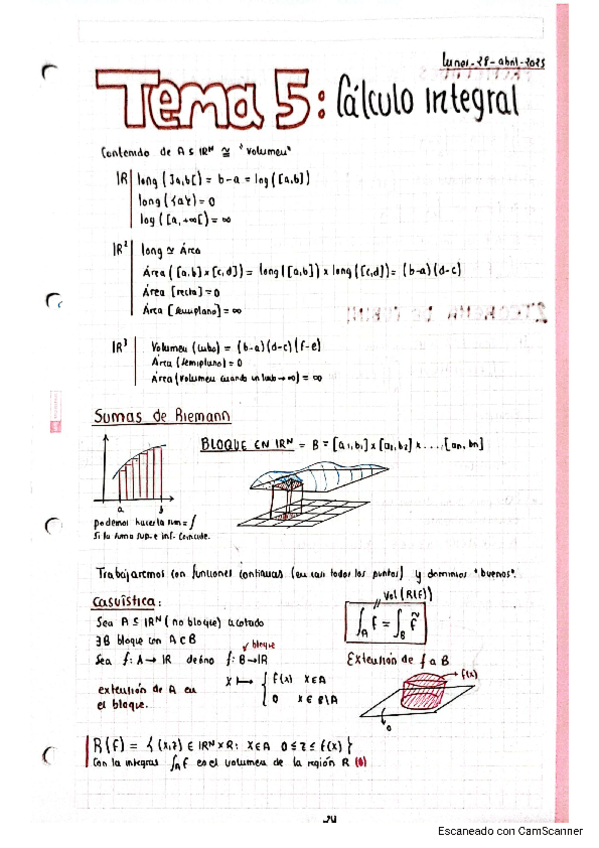 lunes - 28 - abril - 2025
Tema 5: Cálculo integral
Contenido de A ⊆ IRᴺ ≅ "volumen"
IR long (]a,b[) = b-a = log([a,b])
long ({a}) = 0
log ([a,+∞[) = ∞
IR² long ≃ Área
Área ([a,b]x[c,d]) = long([a,b]) x long([c,d]) = (b-a)(d-c)
Área [recta] = 0
Área [semiplano] = ∞
IR³ Volumen (cubo) = (b-a)(d-c)(f-e)
Área (semiplano) = 0
Área (volumen cuando un lado → ∞) = ∞
Sumas de Riemann
BLOQUE EN IRᴺ = B = [a₁,b₁]x[a₂,b₂]x....[an,bn]
a b
podemos hacer la sum = ∫
si la suma sup. e inf. coincide.
Trabajaremos con funciones continuas (en casi todos los puntos) y dominios "buenos".
Casuística:
Vol (R(f))
Sea A ⊆ IRᴺ (no bloque) acotado
∫_A f = ∫_B f̃
∃B bloque con A⊂B
bloque
Sea f: A→ IR defino f: B→IR
Extensión de f a B
x ⟼ { f(x) x∈A
0 x∈B\A
f(x)
extensión de A en
el bloque.
0
R(f) = {(x,z) ∈ IRᴺ×R: x∈A 0≤z≤f(x)}
Con la integral ∫_A f es el volumen de la región R (6)
Escaneado con CamScanner